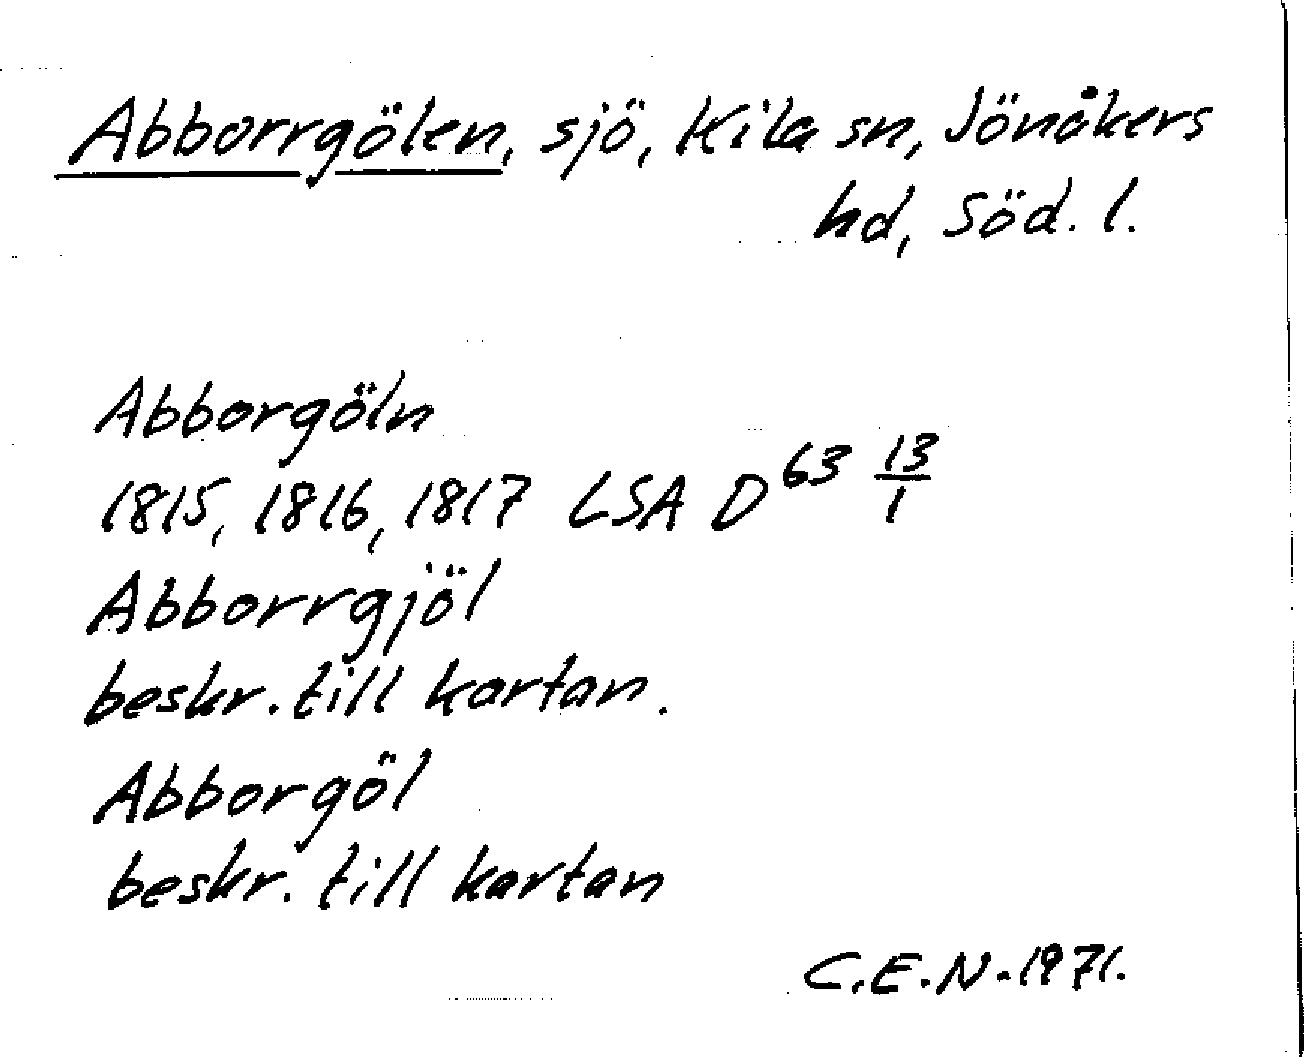 Abborrgölen, sjö, Kila sn, Jönåkers
hd, Söd. l.
Abborgöln
1815, 1816, 1817 LSA D 63 13/1
Abborrgjöl
beskr. till kartan.
Abborgöl
beskr. till kartan
C.E.N. 1971.